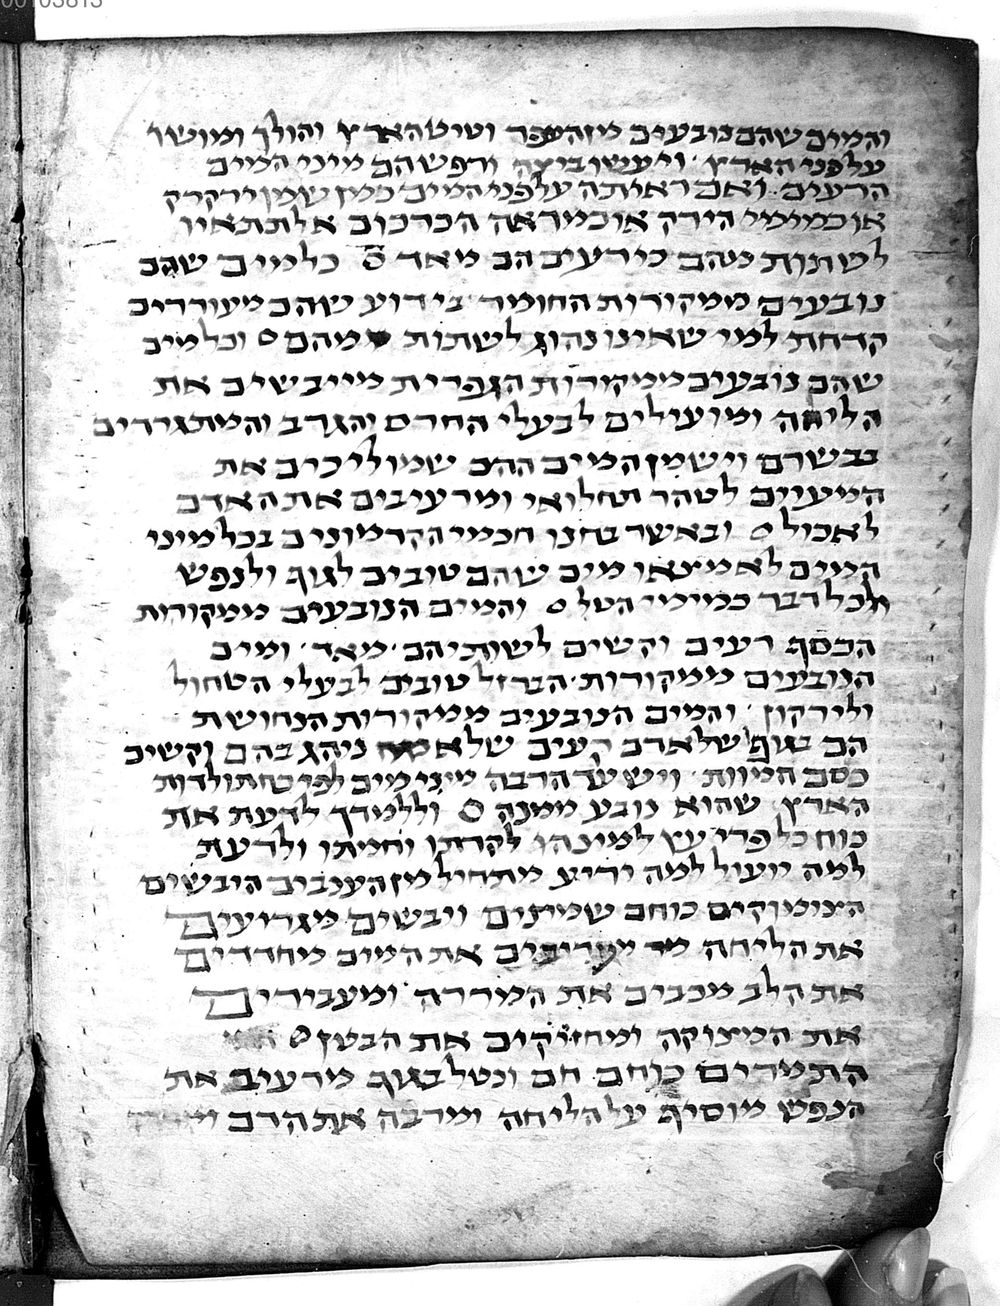 00103813
והמים שהם נובעים מן העפר וטיט הארץ והולך ומושך
על פני הארץ ויעשו ביצה ורפש הם מיני המים
הרעים ואם ראיתה על פני המים כמן שמן ירקרק
או כמימי הירק או כמראה הכרכום אל תתאיו
לשתות מהם כי רעים הם מאד כל מים שהם
נובעים ממקורות החומר בידוע שהם מעוררים
קדחת למי שאינו נהוג לשתות מהם וכל מים
שהם נובעים ממקורות הגפרית מייבשים את
הליחה ומועילים לבעלי החרס והגרב והמתגרדים
בבשרם וישמן המים ההם שמוליכים את
המעיים לטהר תחלואי ומרעיבים את האדם
לאכול ובאשר בחנו חכמי הקדמונים בכל מיני
המים לא מצאו מים שהם טובים לגוף ולנפש
לכל דבר כמימי הטל והמים הנובעים ממקורות
הכסף רעים וקשים לשותיהם מאד ומים
הנובעים ממקורות הברזל טובים לבעלי הטחול
ולירקון והמים הנובעים ממקורות הנחושת
הם בגוף של אדם רעים שלא ניהג בהם וקשים
כסם המוות ויש עד הרבה מיני מים לפי תולדות
הארץ שהוא נובע ממנה וללמדך לדעת את
כוח כל פרי עץ למינהו לקרתו וחמתו ולדעת
למה יועיל למה יריע מתחיל מן הענבים היבשים
הצימוקים כוחם שמינים ויבשים מגרועים
את הליחה מעריבים את המים מחדדים
את הלב מכבים את המררה ומעבירים
את המצוקה ומחזיקים את הבטן
התמרים כוחם חם ונטל בגוף מרעיב את
הנפש מוסיף על הליחה ומרבה את הדם